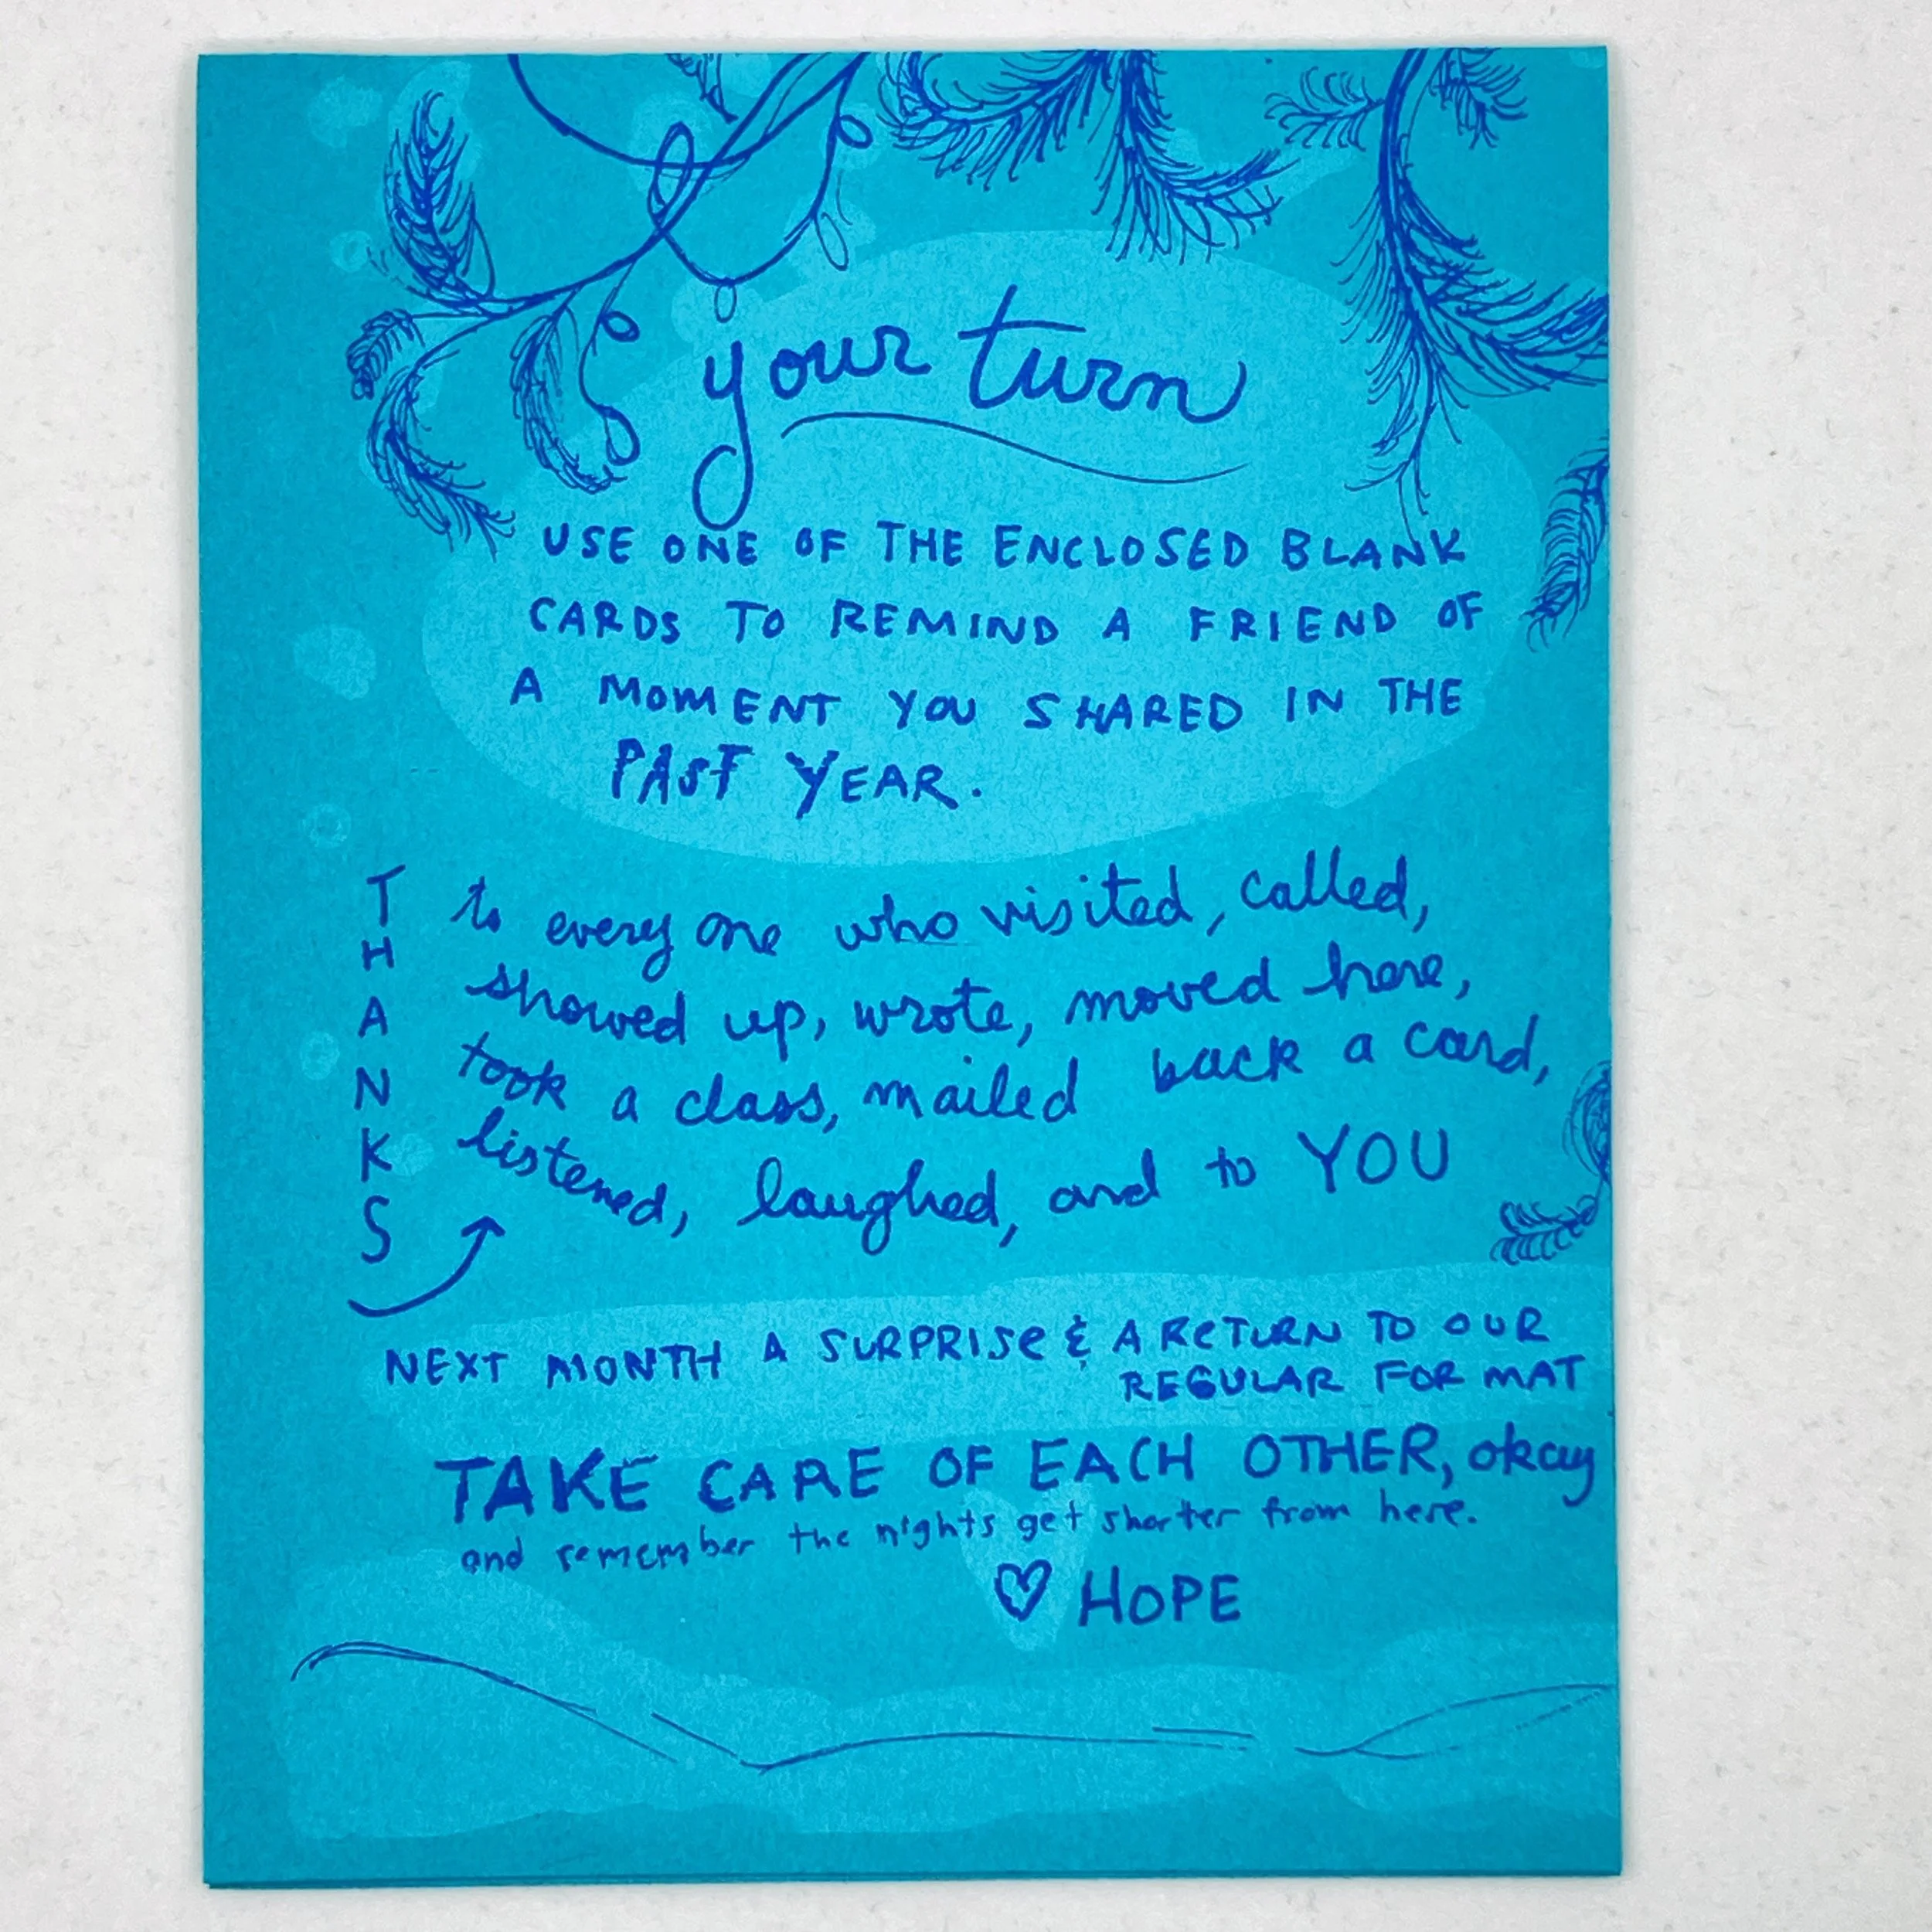 your turn
USE ONE OF THE ENCLOSED BLANK
CARDS TO REMIND A FRIEND OF
A MOMENT YOU SHARED IN THE
PAST YEAR.
THANKS
to everyone who visited, called,
showed up, wrote, moved here,
took a class, mailed back a card,
listened, laughed, and to YOU
NEXT MONTH A SURPRISE & A RETURN TO OUR
REGULAR FORMAT
TAKE CARE OF EACH OTHER, okay
and remember the nights get shorter from here.
♡ HOPE